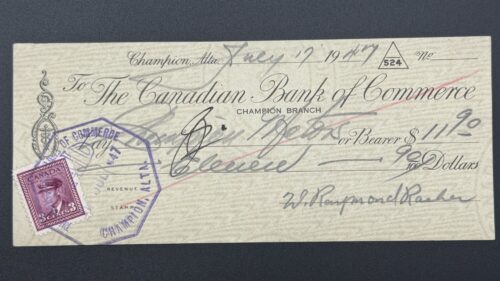 Champion, Alta. July 17 1947 No.
524
To The Canadian Bank of Commerce
CHAMPION BRANCH
Pay or Bearer $ 11.90
Eleven 90/100 Dollars
REVENUE
STAMP
W. Raymond
OF COMMERCE
47
CHAMPION, ALTA.
CANADA
3 3